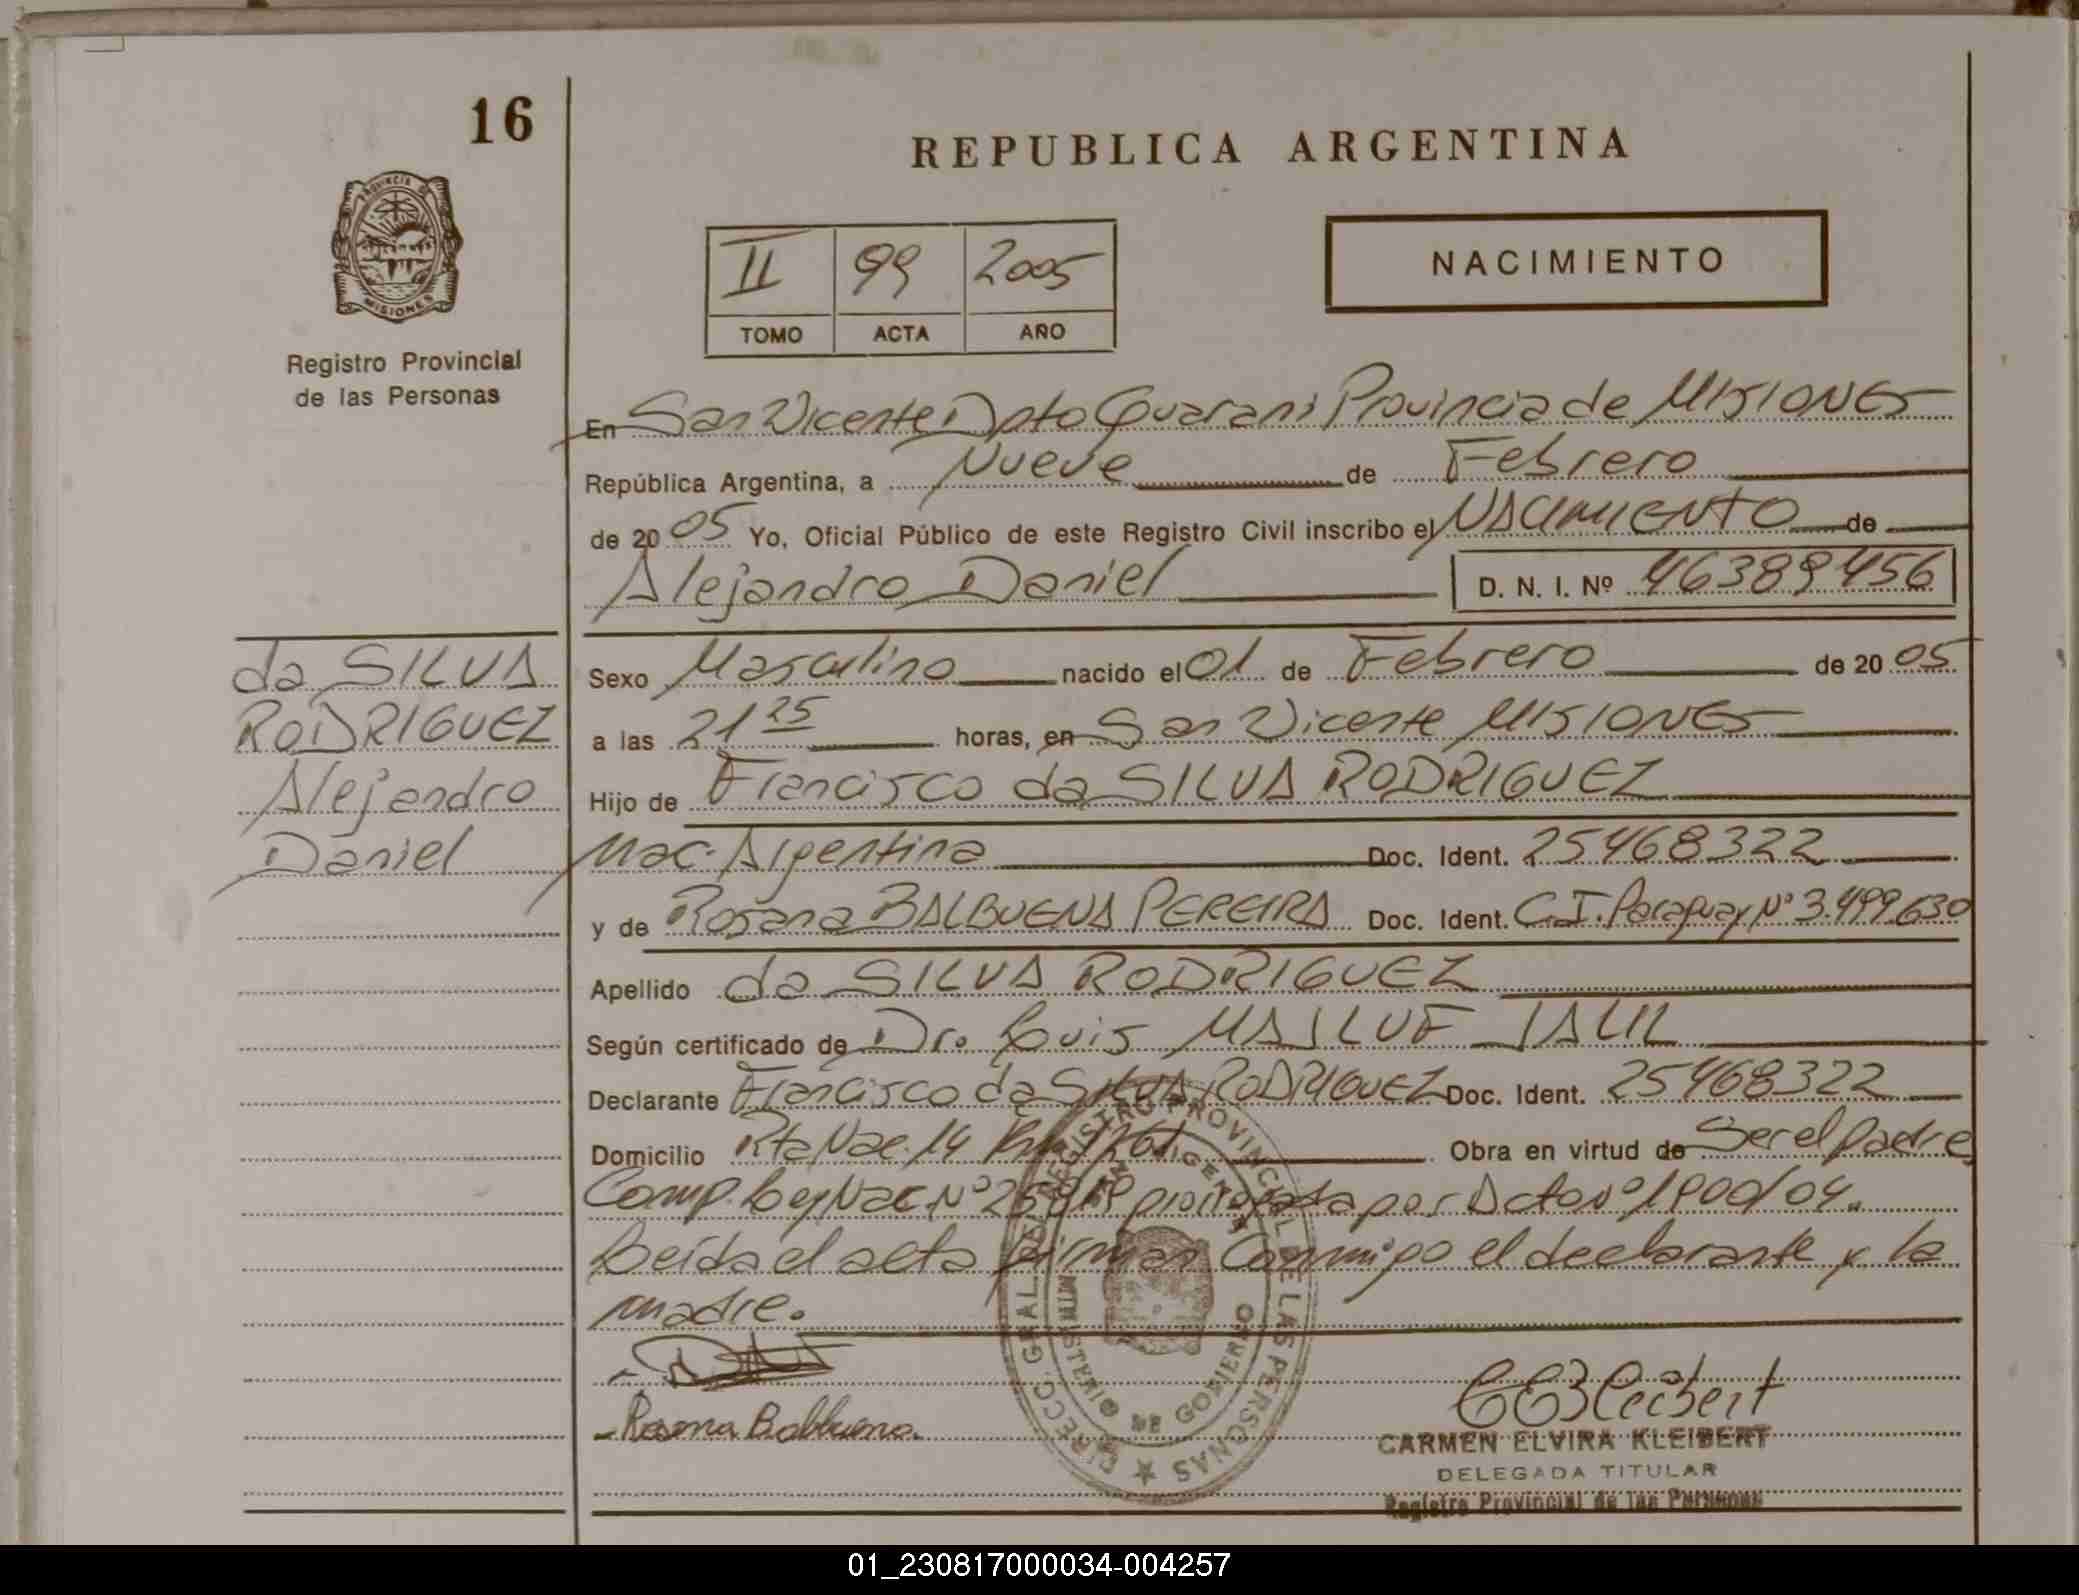 16
REPUBLICA ARGENTINA
PROVINCIA DE
MISIONES
II 99 2005
TOMO ACTA AÑO
NACIMIENTO
Registro Provincial
de las Personas
En San Vicente Dpto Guarani Provincia de MISIONES
República Argentina, a Nueve de Febrero
de 2005 Yo, Oficial Público de este Registro Civil inscribo el NACIMIENTO de
Alejandro Daniel D. N. I. Nº 46389456
da SILVA
RODRIGUEZ
Alejandro
Daniel
Sexo Masculino nacido el 01 de Febrero de 2005
a las 21 25 horas, en San Vicente MISIONES
Hijo de Francisco da SILVA RODRIGUEZ
Nac. Argentina Doc. Ident. 25468322
y de Rosana BALBUENA PEREIRA Doc. Ident. C.I. Paraguay Nº 3.499.630
Apellido da SILVA RODRIGUEZ
Según certificado de Dr. Luis JALIL
Declarante Francisco da SILVA RODRIGUEZ Doc. Ident. 25468322
Domicilio Rta Nac. 14 Obra en virtud de Ser el padre
Comp. Ley Nac. Nº por Dcto Nº 1900/04.
Leída el acta firman Conmigo el declarante y la
madre.
Rosana Balbuena.
DIRECC. GRAL. DEL REGISTRO PROVINCIAL DE LAS PERSONAS
MINISTERIO DE GOBIERNO
CARMEN ELVIRA KLEIBERT
DELEGADA TITULAR
Registro Provincial de las Personas
01_230817000034-004257